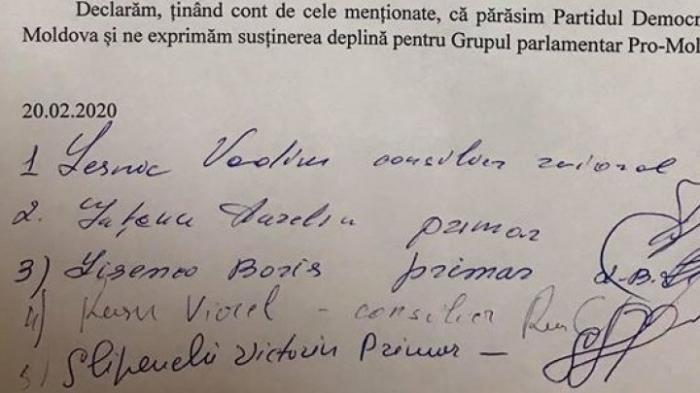 Declarăm, ținând cont de cele menționate, că părăsim Partidul Democr
Moldova și ne exprimăm susținerea deplină pentru Grupul parlamentar Pro-Mol
20.02.2020
1 Lesnic Vadim consilier raional
2. Iațenco Aureliu primar
3) Lisenco Boris primar L-B.
4) Rusu Viorel - consilier
5) Slipenchi Victorin Primar -